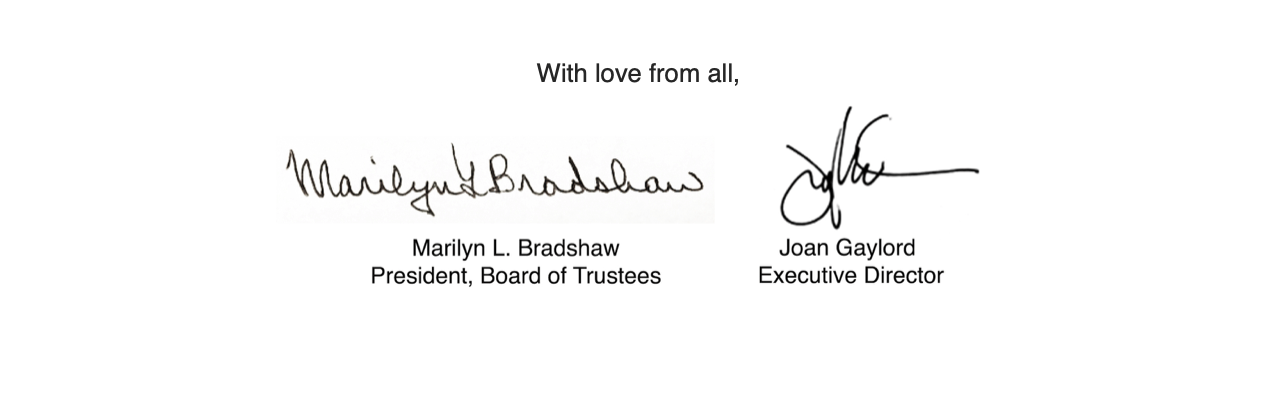 With love from all,
Marilyn L Bradshaw
Marilyn L. Bradshaw
President, Board of Trustees
Joan Gaylord
Executive Director